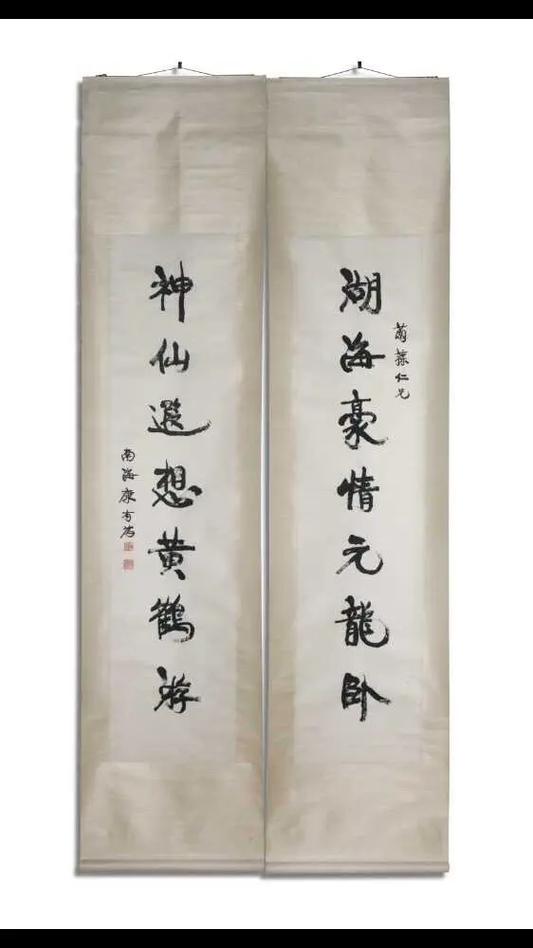 湖海豪情元龍卧
仁兄
神仙遐想黃鶴游
南海康有為